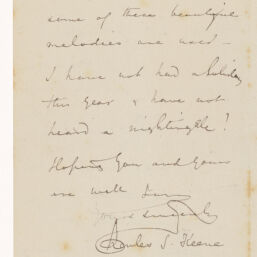 some of these beautiful
melodies are used –
I have not had a holiday
this year & have not
heard a nightingale!
Hoping you and yours
are well I am
yours sincerely
Charles S. Keene